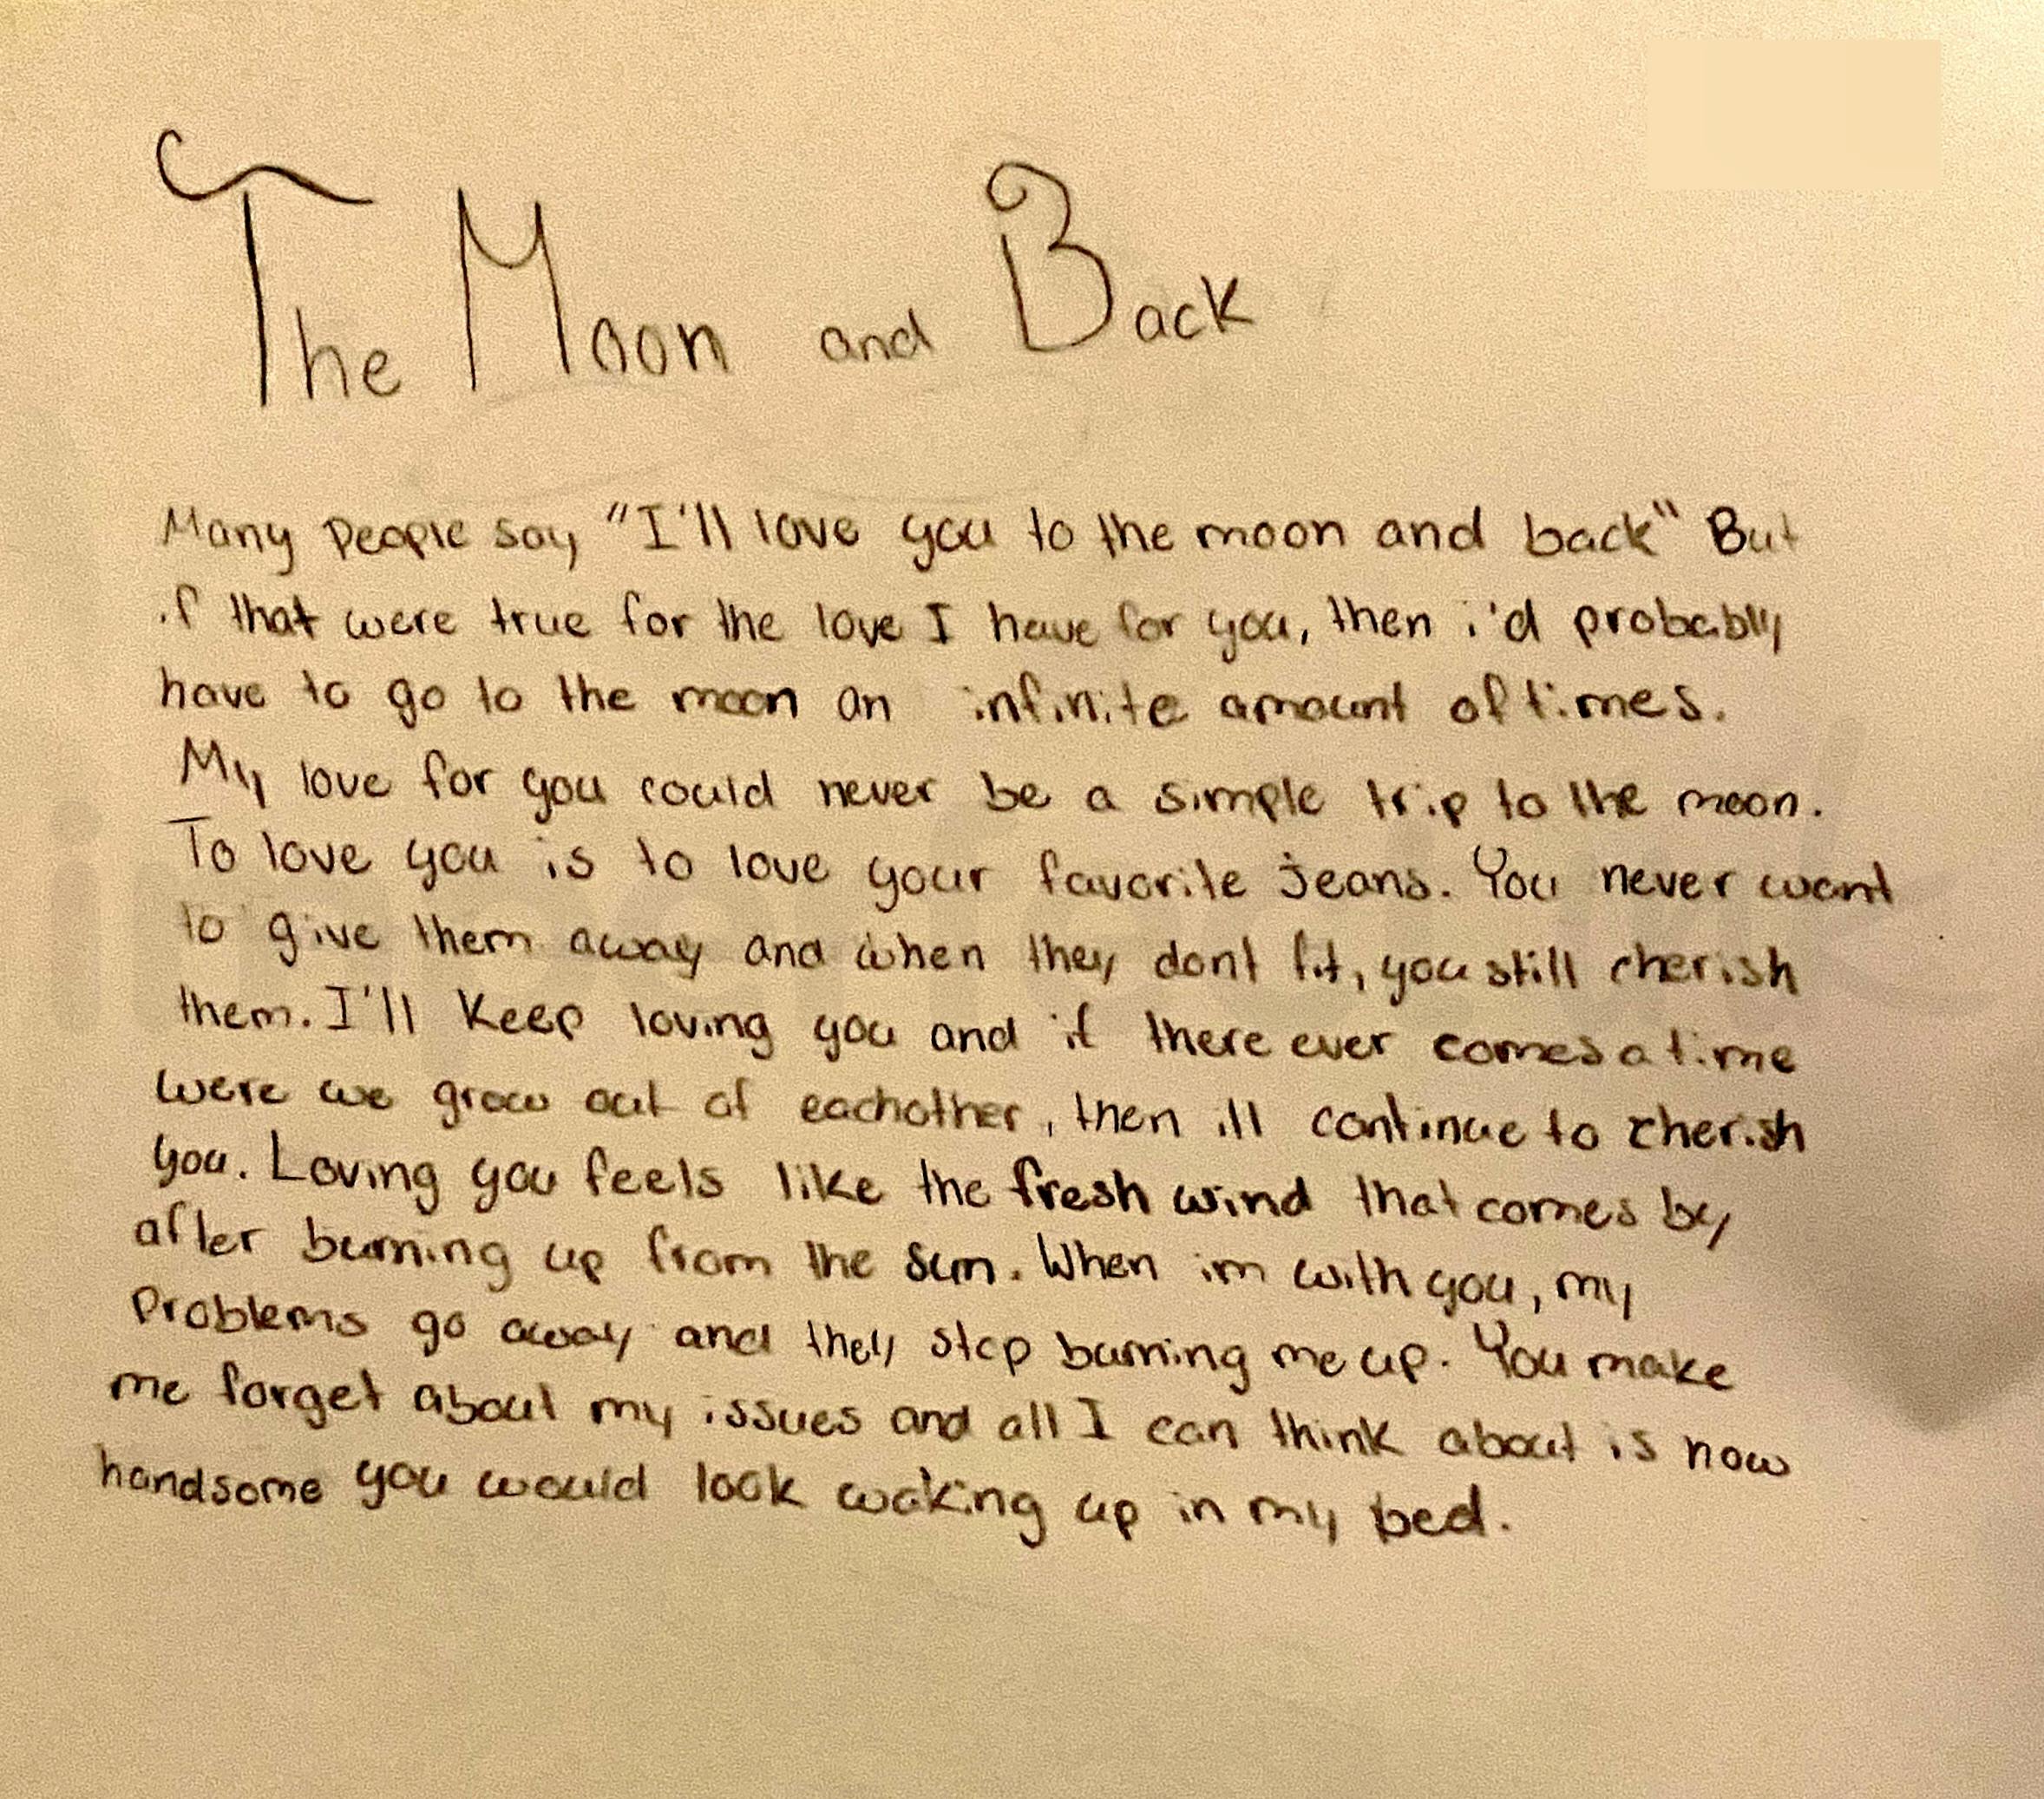 The Moon and Back
Many People say "I'll love you to the moon and back" But
if that were true for the love I have for you, then i'd probably
have to go to the moon an infinite amount of times.
My love for you could never be a simple trip to the moon.
To love you is to love your favorite jeans. You never want
to give them away and when they dont fit, you still cherish
them. I'll keep loving you and if there ever comes a time
were we grow out of eachother, then ill continue to cherish
you. Loving you feels like the fresh wind that comes by
after burning up from the sun. When im with you, my
Problems go away and they stop burning me up. You make
me forget about my issues and all I can think about is how
handsome you would look waking up in my bed.